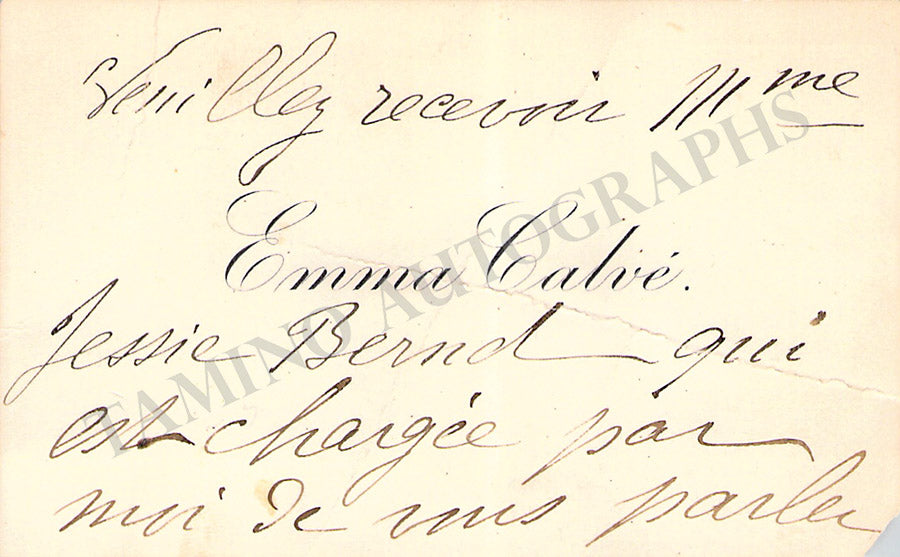 Veuillez recevoir Mme
Emma Calvé.
Jessie Bernd qui
est chargée par
moi de vous parler
TAMINO AUTOGRAPHS